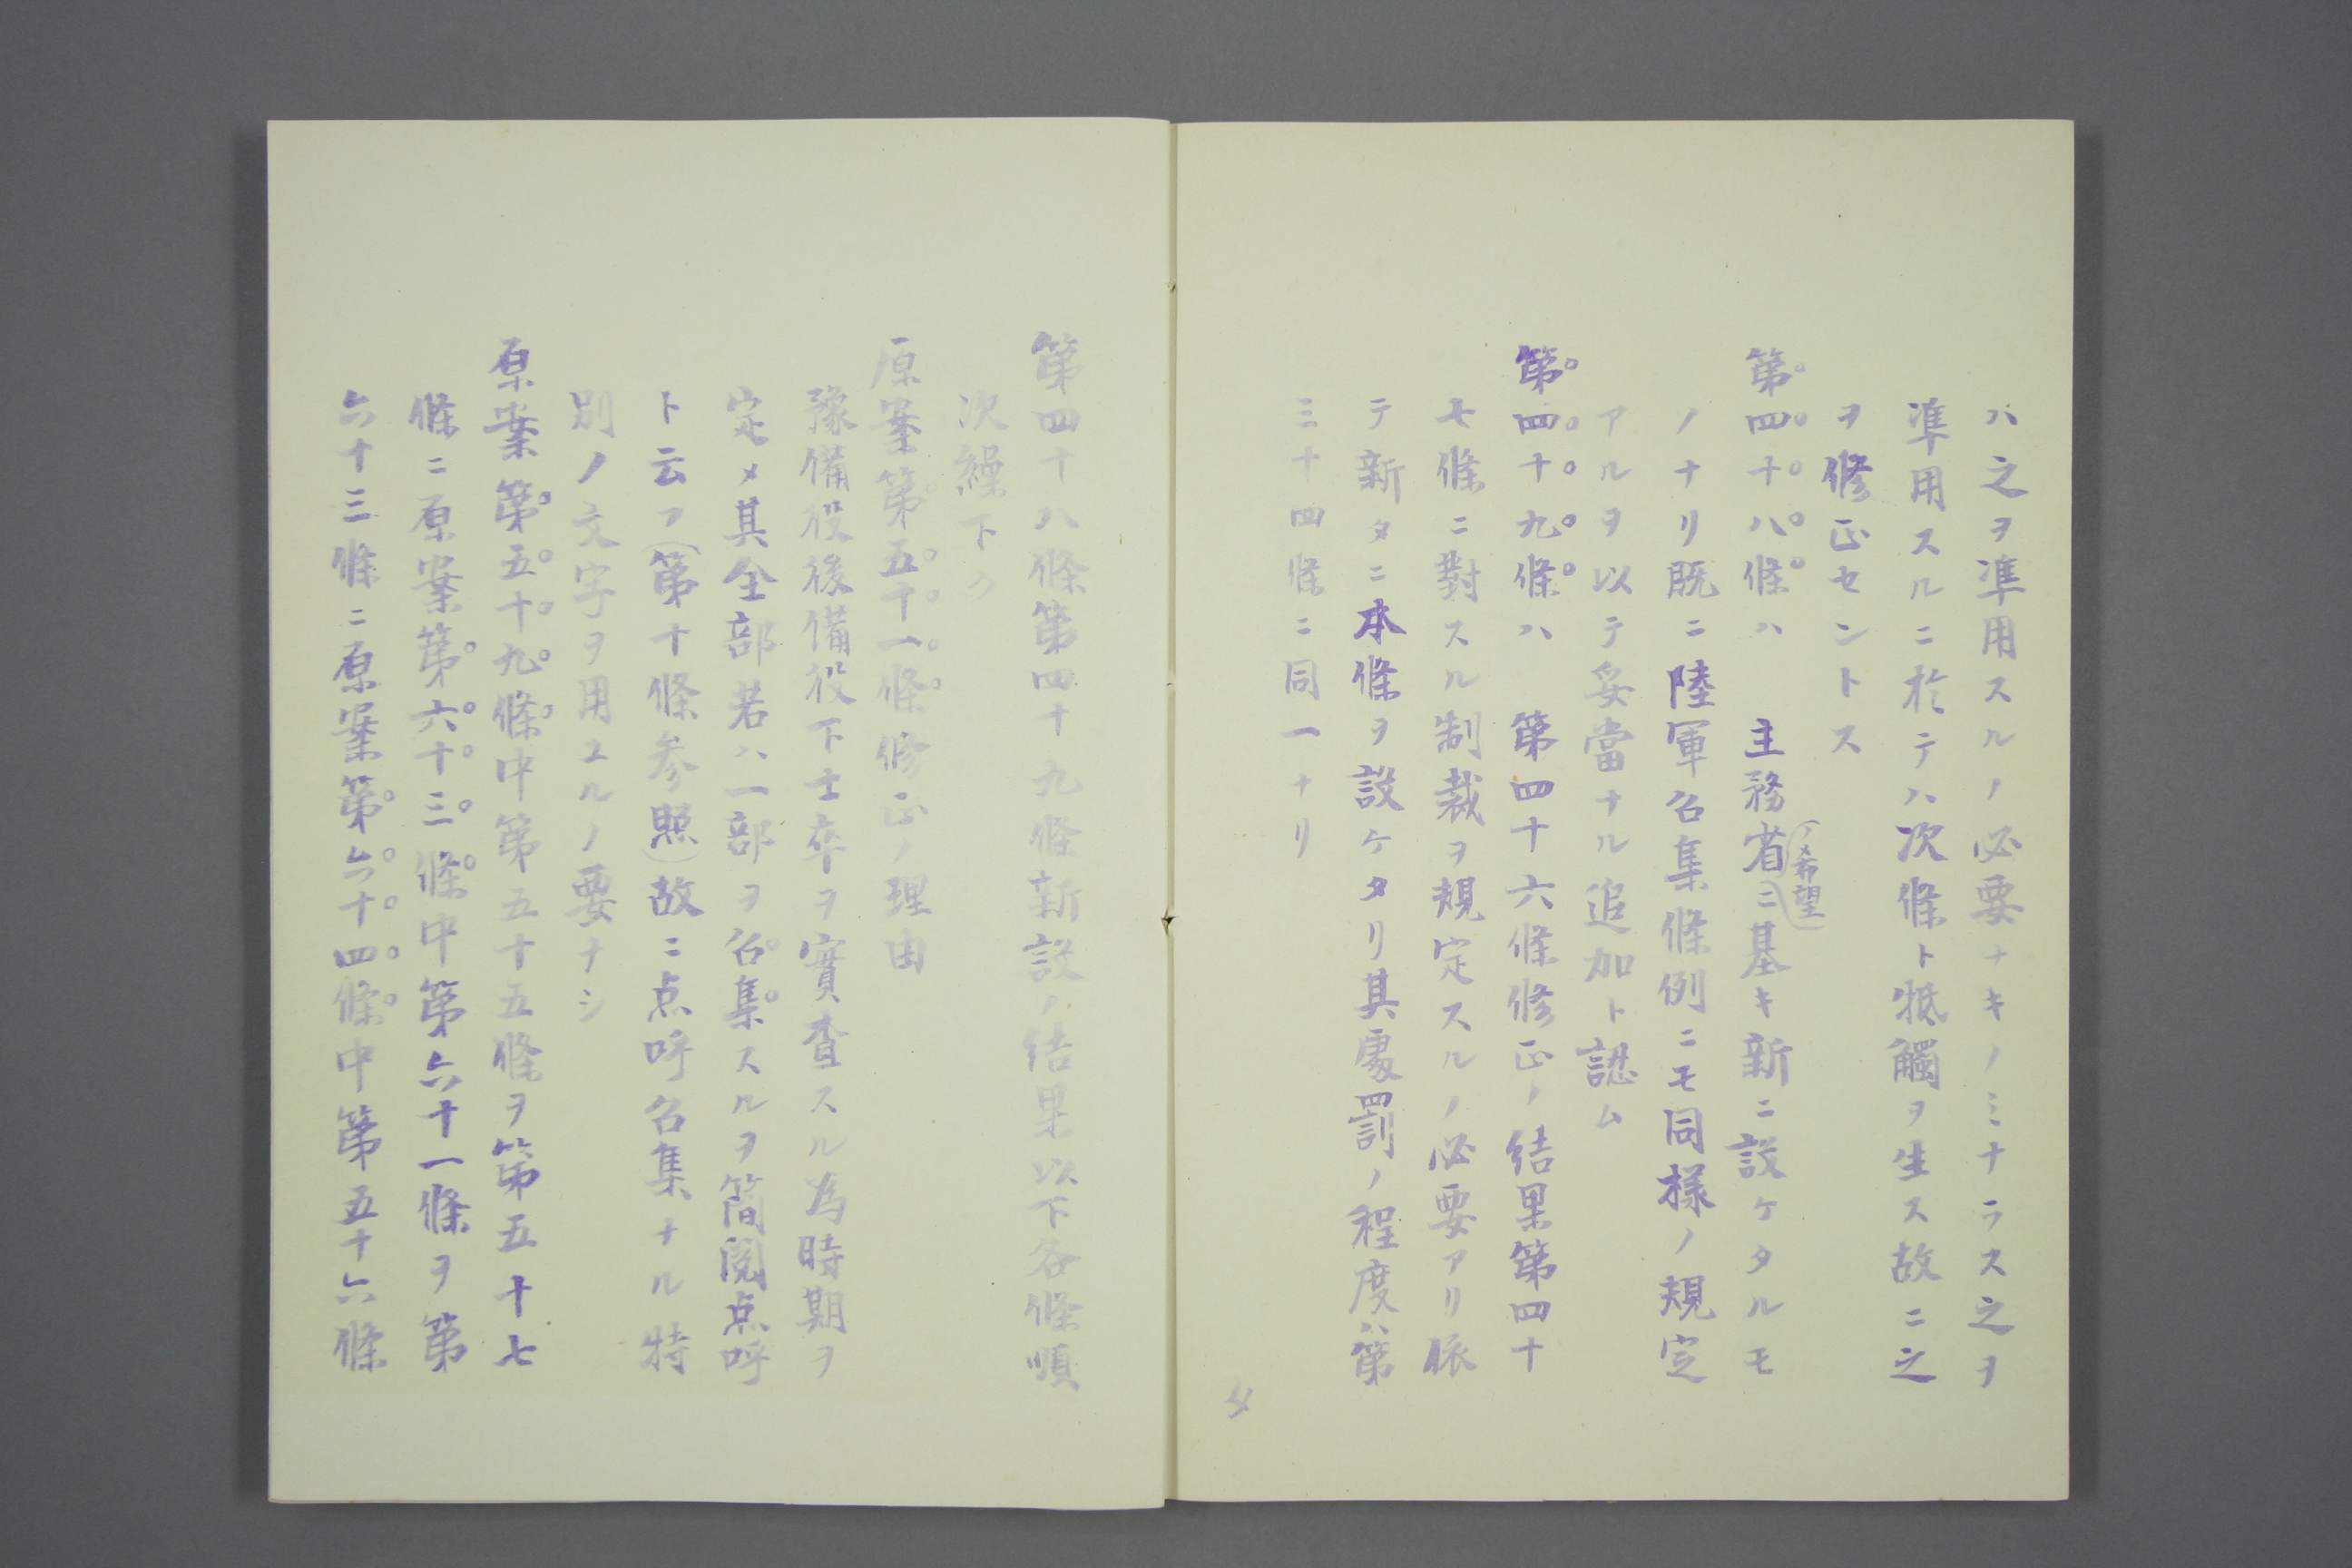 ハ之ヲ準用スルノ必要ナキノミナラス之ヲ
準用スルニ於テハ次條ト牴觸ヲ生ス故ニ之
ヲ修正セントス
第四十八條ハ 主務省(ノ希望)ニ基キ新ニ設ケタルモ
ノナリ既ニ陸軍召集條例ニモ同様ノ規定
アルヲ以テ妥當ナル追加ト認ム
第四十九條ハ 第四十六條修正ノ結果第四十
七條ニ對スル制裁ヲ規定スルノ必要アリ依
テ新タニ本條ヲ設ケタリ其處罰ノ程度ハ第
三十四條ニ同一ナリ
第四十八條第四十九條新設ノ結果以下各條順
次繰下ク
原案第五十一條修正ノ理由
豫備役後備役下士卒ヲ實査スル為時期ヲ
定メ其全部若ハ一部ヲ召集スルヲ簡閲点呼
ト云フ(第十條参照)故ニ点呼召集ナル特
別ノ文字ヲ用ユルノ要ナシ
原案第五十九條中第五十五條ヲ第五十七
條ニ原案第六十三條中第六十一條ヲ第
六十三條ニ原案第六十四條中第五十六條